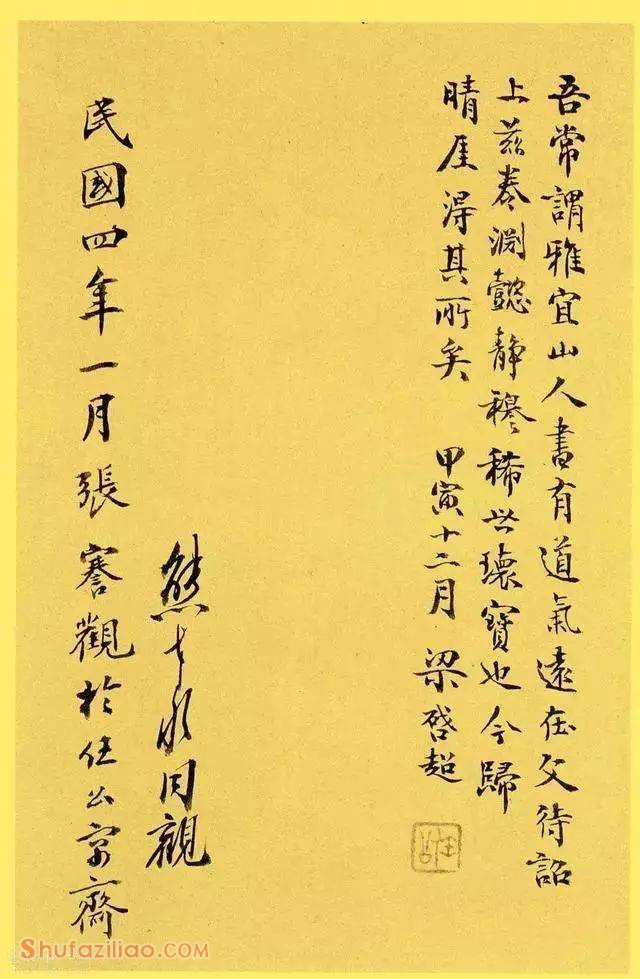 吾常謂雅宜山人書有道氣遠在文待詔
上茲卷淵懿靜穆稀世瓌寶也今歸
晴厓得其所矣 甲寅十二月梁啓超
熊希齡同觀
民國四年一月張謇觀於任公寓齋
Shufaziliao.com